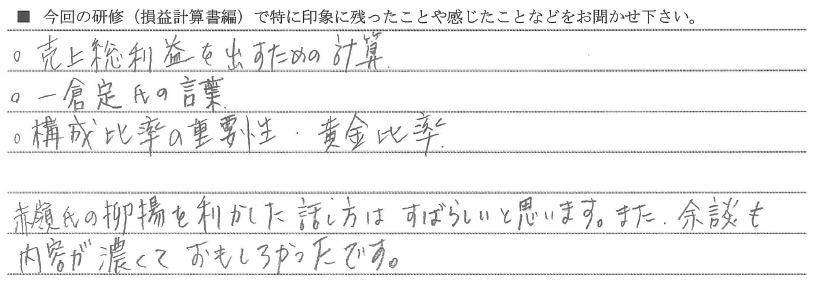 ■ 今回の研修（損益計算書編）で特に印象に残ったことや感じたことなどをお聞かせ下さい。
○ 売上総利益を出すための計算
○ 一倉定氏の言葉
○ 構成比率の重要性・黄金比率
赤嶺氏の抑揚を利かした話し方はすばらしいと思います。また、余談も
内容が濃くておもしろかったです。